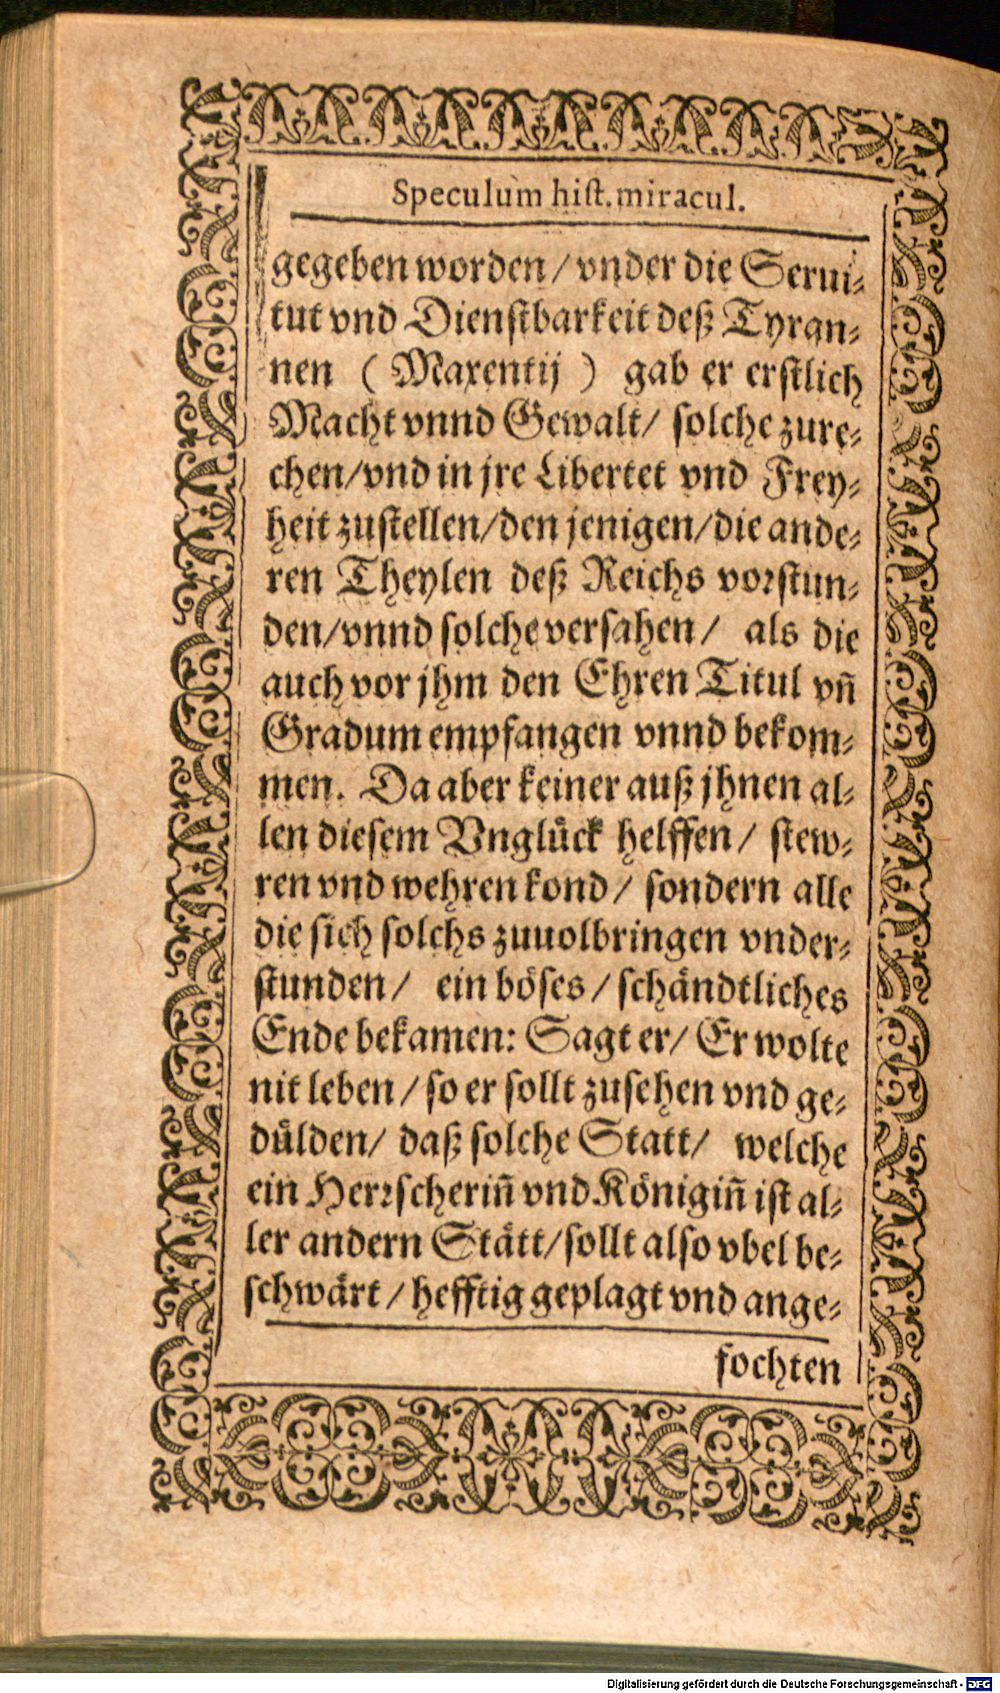 Speculum hiſt. miracul.
gegeben worden / vnder die Serui⸗
tut vnd Dienſtbarkeit deß Tyran⸗
nen ( Maxentij ) gab er erſtlich
Macht vnnd Gewalt / ſolche zure⸗
chen / vnd in jre Libertet vnd Frey⸗
heit zuſtellen / den jenigen / die ande⸗
ren Theylen deß Reichs vorſtun⸗
den / vnnd ſolche verſahen / als die
auch vor jhm den Ehren Titul vn̄
Gradum empfangen vnnd bekom⸗
men. Da aber keiner auß jhnen al⸗
len dieſem Vnglůck helffen / ſtew⸗
ren vnd wehren kond / ſondern alle
die ſich ſolchs zuuolbringen vnder⸗
ſtunden / ein böſes / ſchåndtliches
Ende bekamen: Sagt er / Er wolte
nit leben / ſo er ſollt zuſehen vnd ge⸗
důlden / daß ſolche Statt / welche
ein Herꝛſcherin̄ vnd Königin̄ iſt al⸗
ler andern Stått / ſollt alſo vbel be⸗
ſchwårt / hefftig geplagt vnd ange⸗
fochten
Digitalisierung gefördert durch die Deutsche Forschungsgemeinschaft - DFG